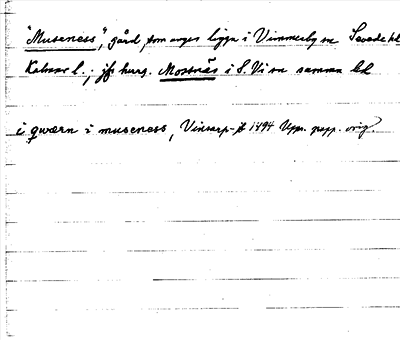 "Museness", gård, som anges ligga i Vimmerby sn Sevede hd
Kalmar l.; jfr herg. Mossnäs i S. Vi sn samma hd
i qwærn i museness, Vinsarp- 1494 Upp. papp. orig.